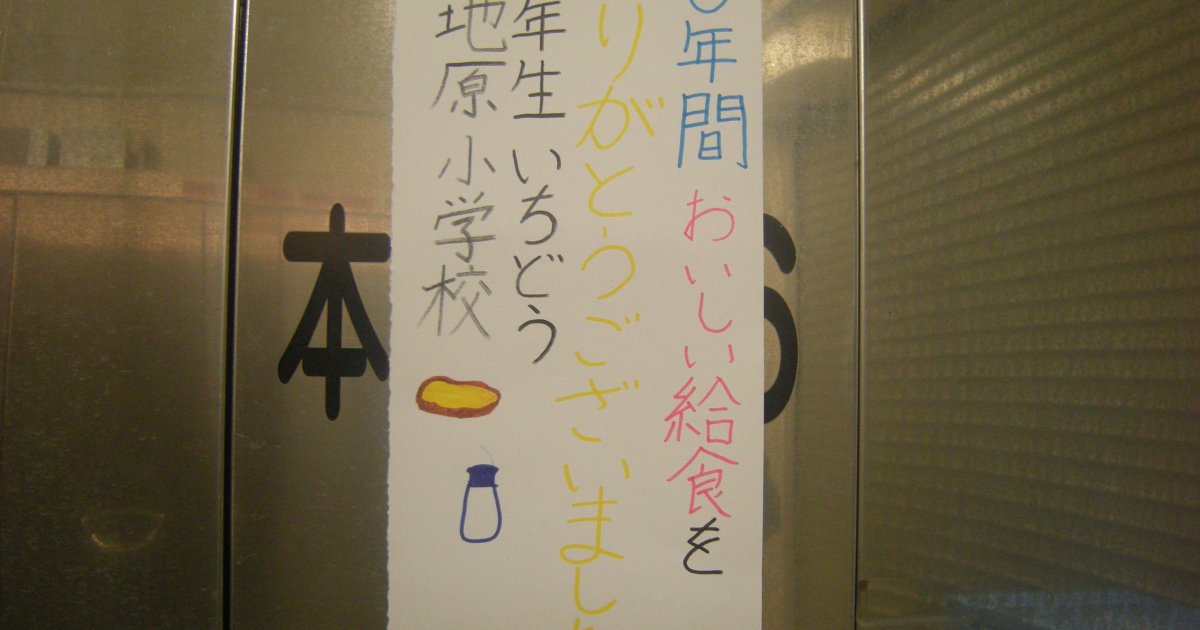 年間 おいしい給食を
りがとうございまし
年生 いちどう
地原小学校
本